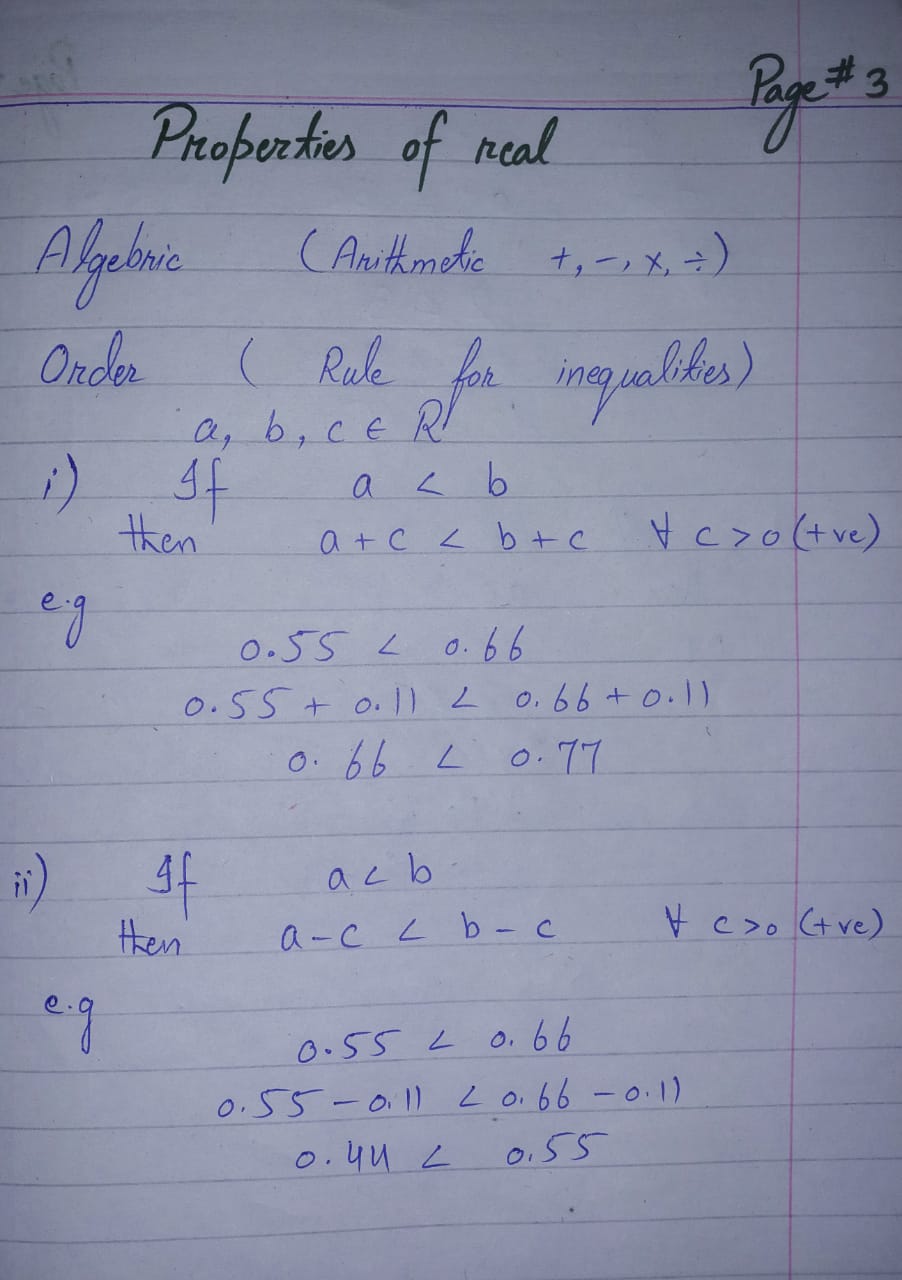 Page # 3
Properties of real
Algebric (Arithmetic +, -, ×, ÷)
Order ( Rule for inequalities)
a, b, c ∈ R
i) If a < b
then a + c < b + c ∀ c > 0 (+ve)
e.g
0.55 < 0.66
0.55 + 0.11 < 0.66 + 0.11
0.66 < 0.77
ii) If a < b
then a - c < b - c ∀ c > 0 (+ve)
e.g
0.55 < 0.66
0.55 - 0.11 < 0.66 - 0.11
0.44 < 0.55